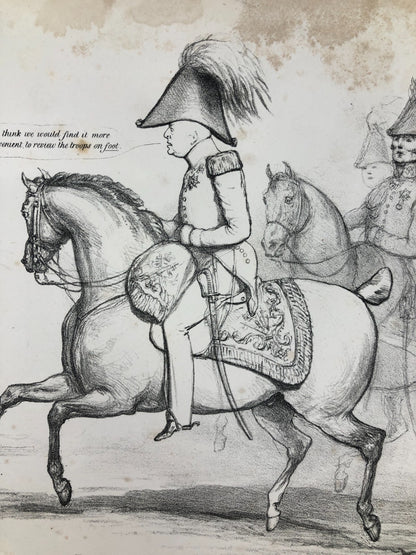 think we would find it more
venient to review the troops on foot